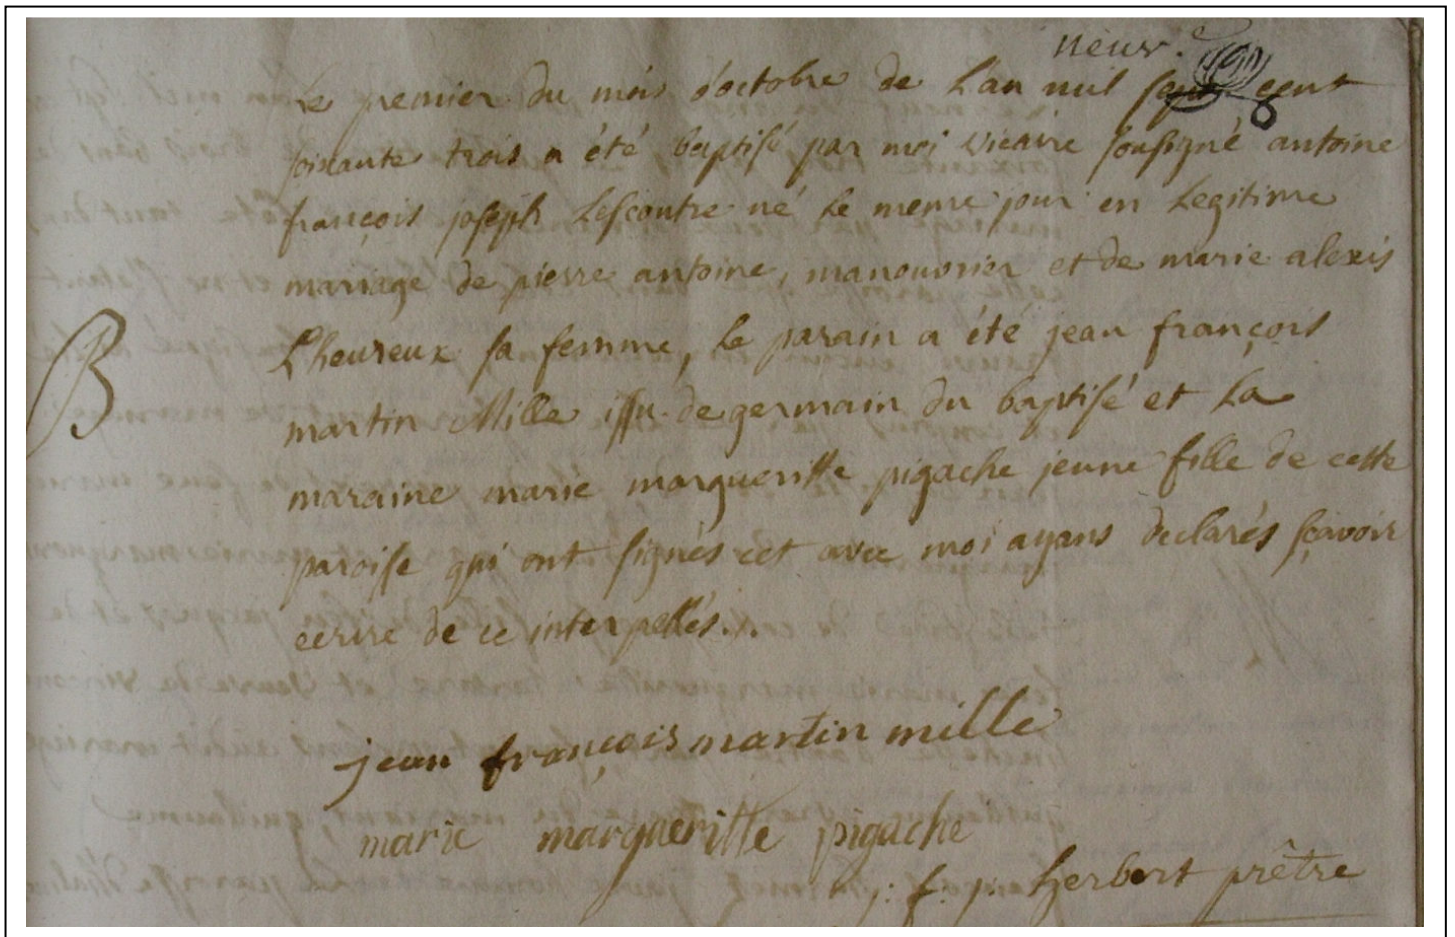 neuv.
Le premier du mois d'octobre de L'an mil sept cent
soixante trois a été baptisé par moi vicaire sousigné antoine
françois joseph Lescoutre né le meme jour en Legitime
mariage de pierre antoine, manouvrier et de marie alexis
B
L'heureux sa femme, le parain a été jean françois
martin Mille issu de germain du baptisé et La
maraine marie margueritte pigache jeune fille de cette
paroisse qui ont signés cet avec moi ayans declarés sçavoir
ecrire de ce interpellés...
jean françois martin mille
marie margueritte pigache
f. p. herbert prêtre